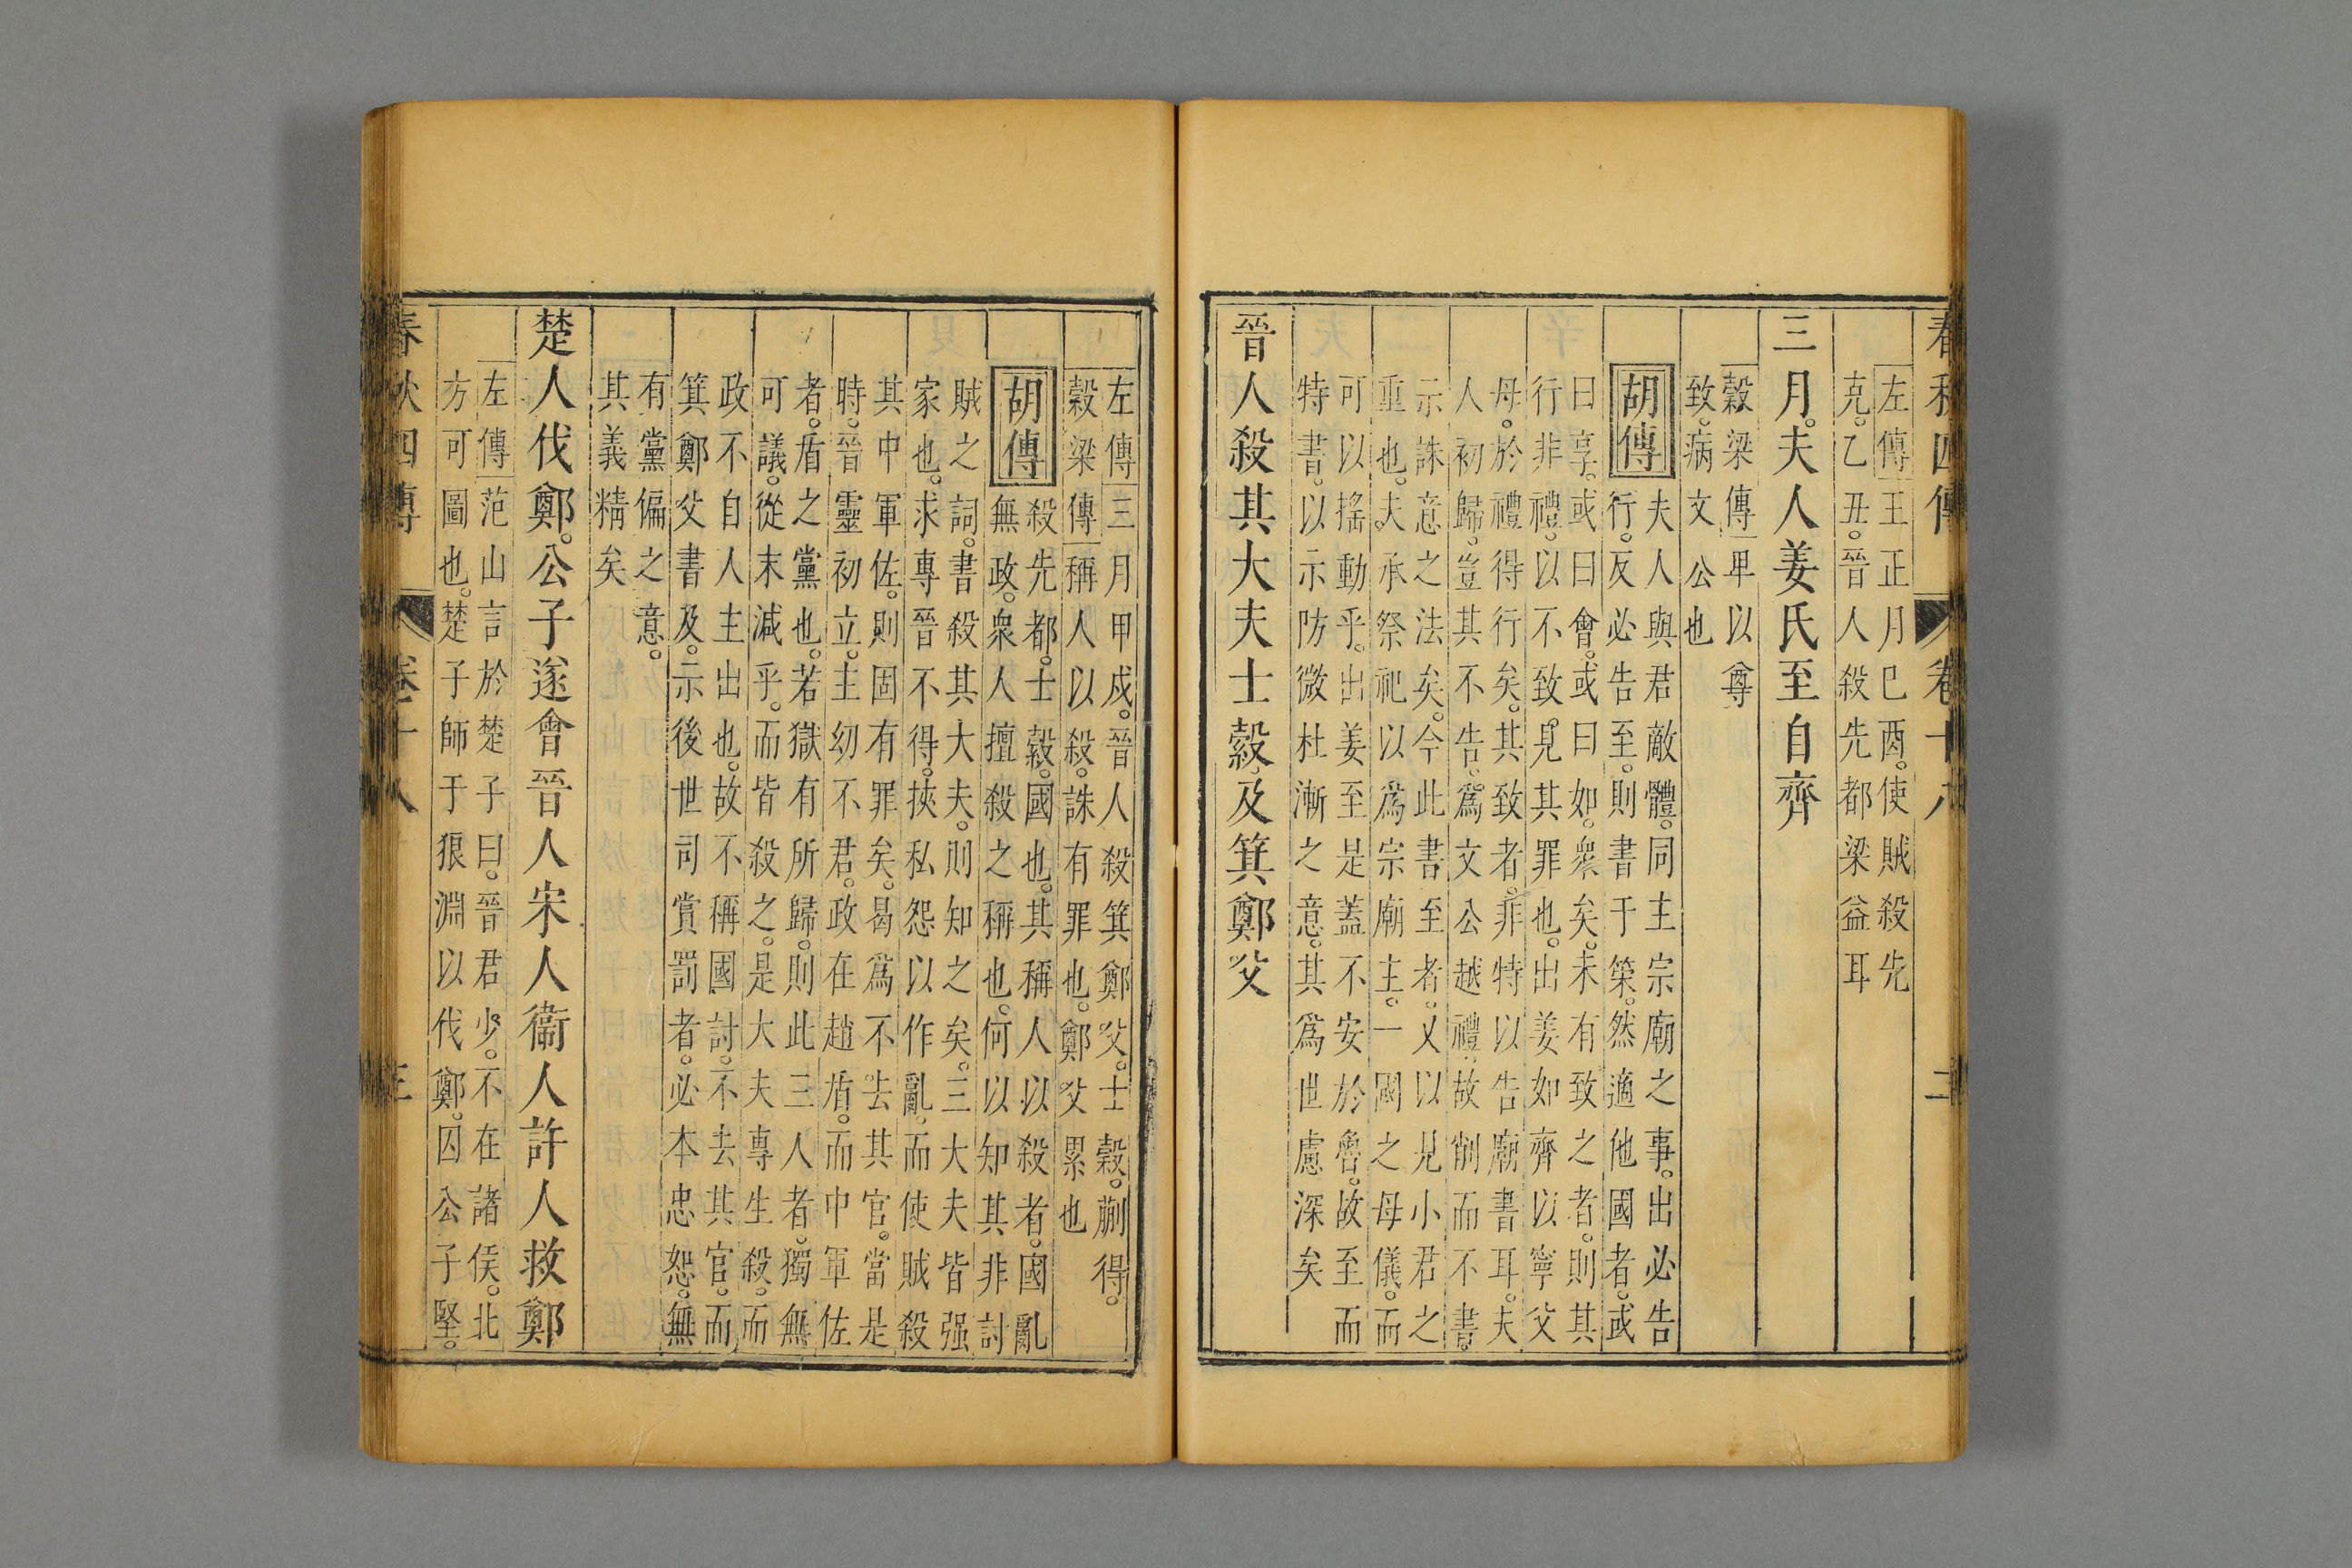 春秋四傳 卷十八 二
左傳王正月己酉。使賊殺先
克。乙丑。晉人殺先都梁益耳
三月。夫人姜氏至自齊
穀梁傳卑以尊
致。病文公也
胡傳
夫人與君敵體。同主宗廟之事。出必告
行。反必告至。則書于策。然適他國者。或
曰享。或曰會。或曰如。衆矣。未有致之者。則其
行非禮。以不致見其罪也。出姜如齊以寧父
母。於禮得行矣。其致者。非特以告廟書耳。夫
人初歸。豈其不告。爲文公越禮。故削而不書。
示誅意之法矣。今此書至者。又以見小君之
重也。夫承祭祀以爲宗廟主。一國之母儀。而
可以搖動乎。出姜至是蓋不安於魯。故至而
特書。以示防微杜漸之意。其爲世慮深矣
晉人殺其大夫士縠及箕鄭父
左傳三月甲戌。晉人殺箕鄭父。士縠。蒯得。
穀梁傳稱人以殺。誅有罪也。鄭父累也
胡傳
殺先都。士縠。國也。其稱人以殺者。國亂
無政。衆人擅殺之稱也。何以知其非討
賊之詞。書殺其大夫。則知之矣。三大夫皆强
家也。求專晉不得。挾私怨以作亂。而使賊殺
其中軍佐。則固有罪矣。曷爲不去其官。當是
時。晉靈初立。主幼不君。政在趙盾。而中軍佐
者。盾之黨也。若獄有所歸。則此三人者。獨無
可議。從末減乎。而皆殺之。是大夫專生殺。而
政不自人主出也。故不稱國討。不去其官。而
箕鄭父書及。示後世司賞罰者。必本忠恕。無
有黨偏之意。
其義精矣
楚人伐鄭。公子遂會晉人宋人衞人許人救鄭
左傳范山言於楚子曰。晉君少。不在諸侯。北
方可圖也。楚子師于狼淵以伐鄭。囚公子堅。
春秋四傳 卷十八 三